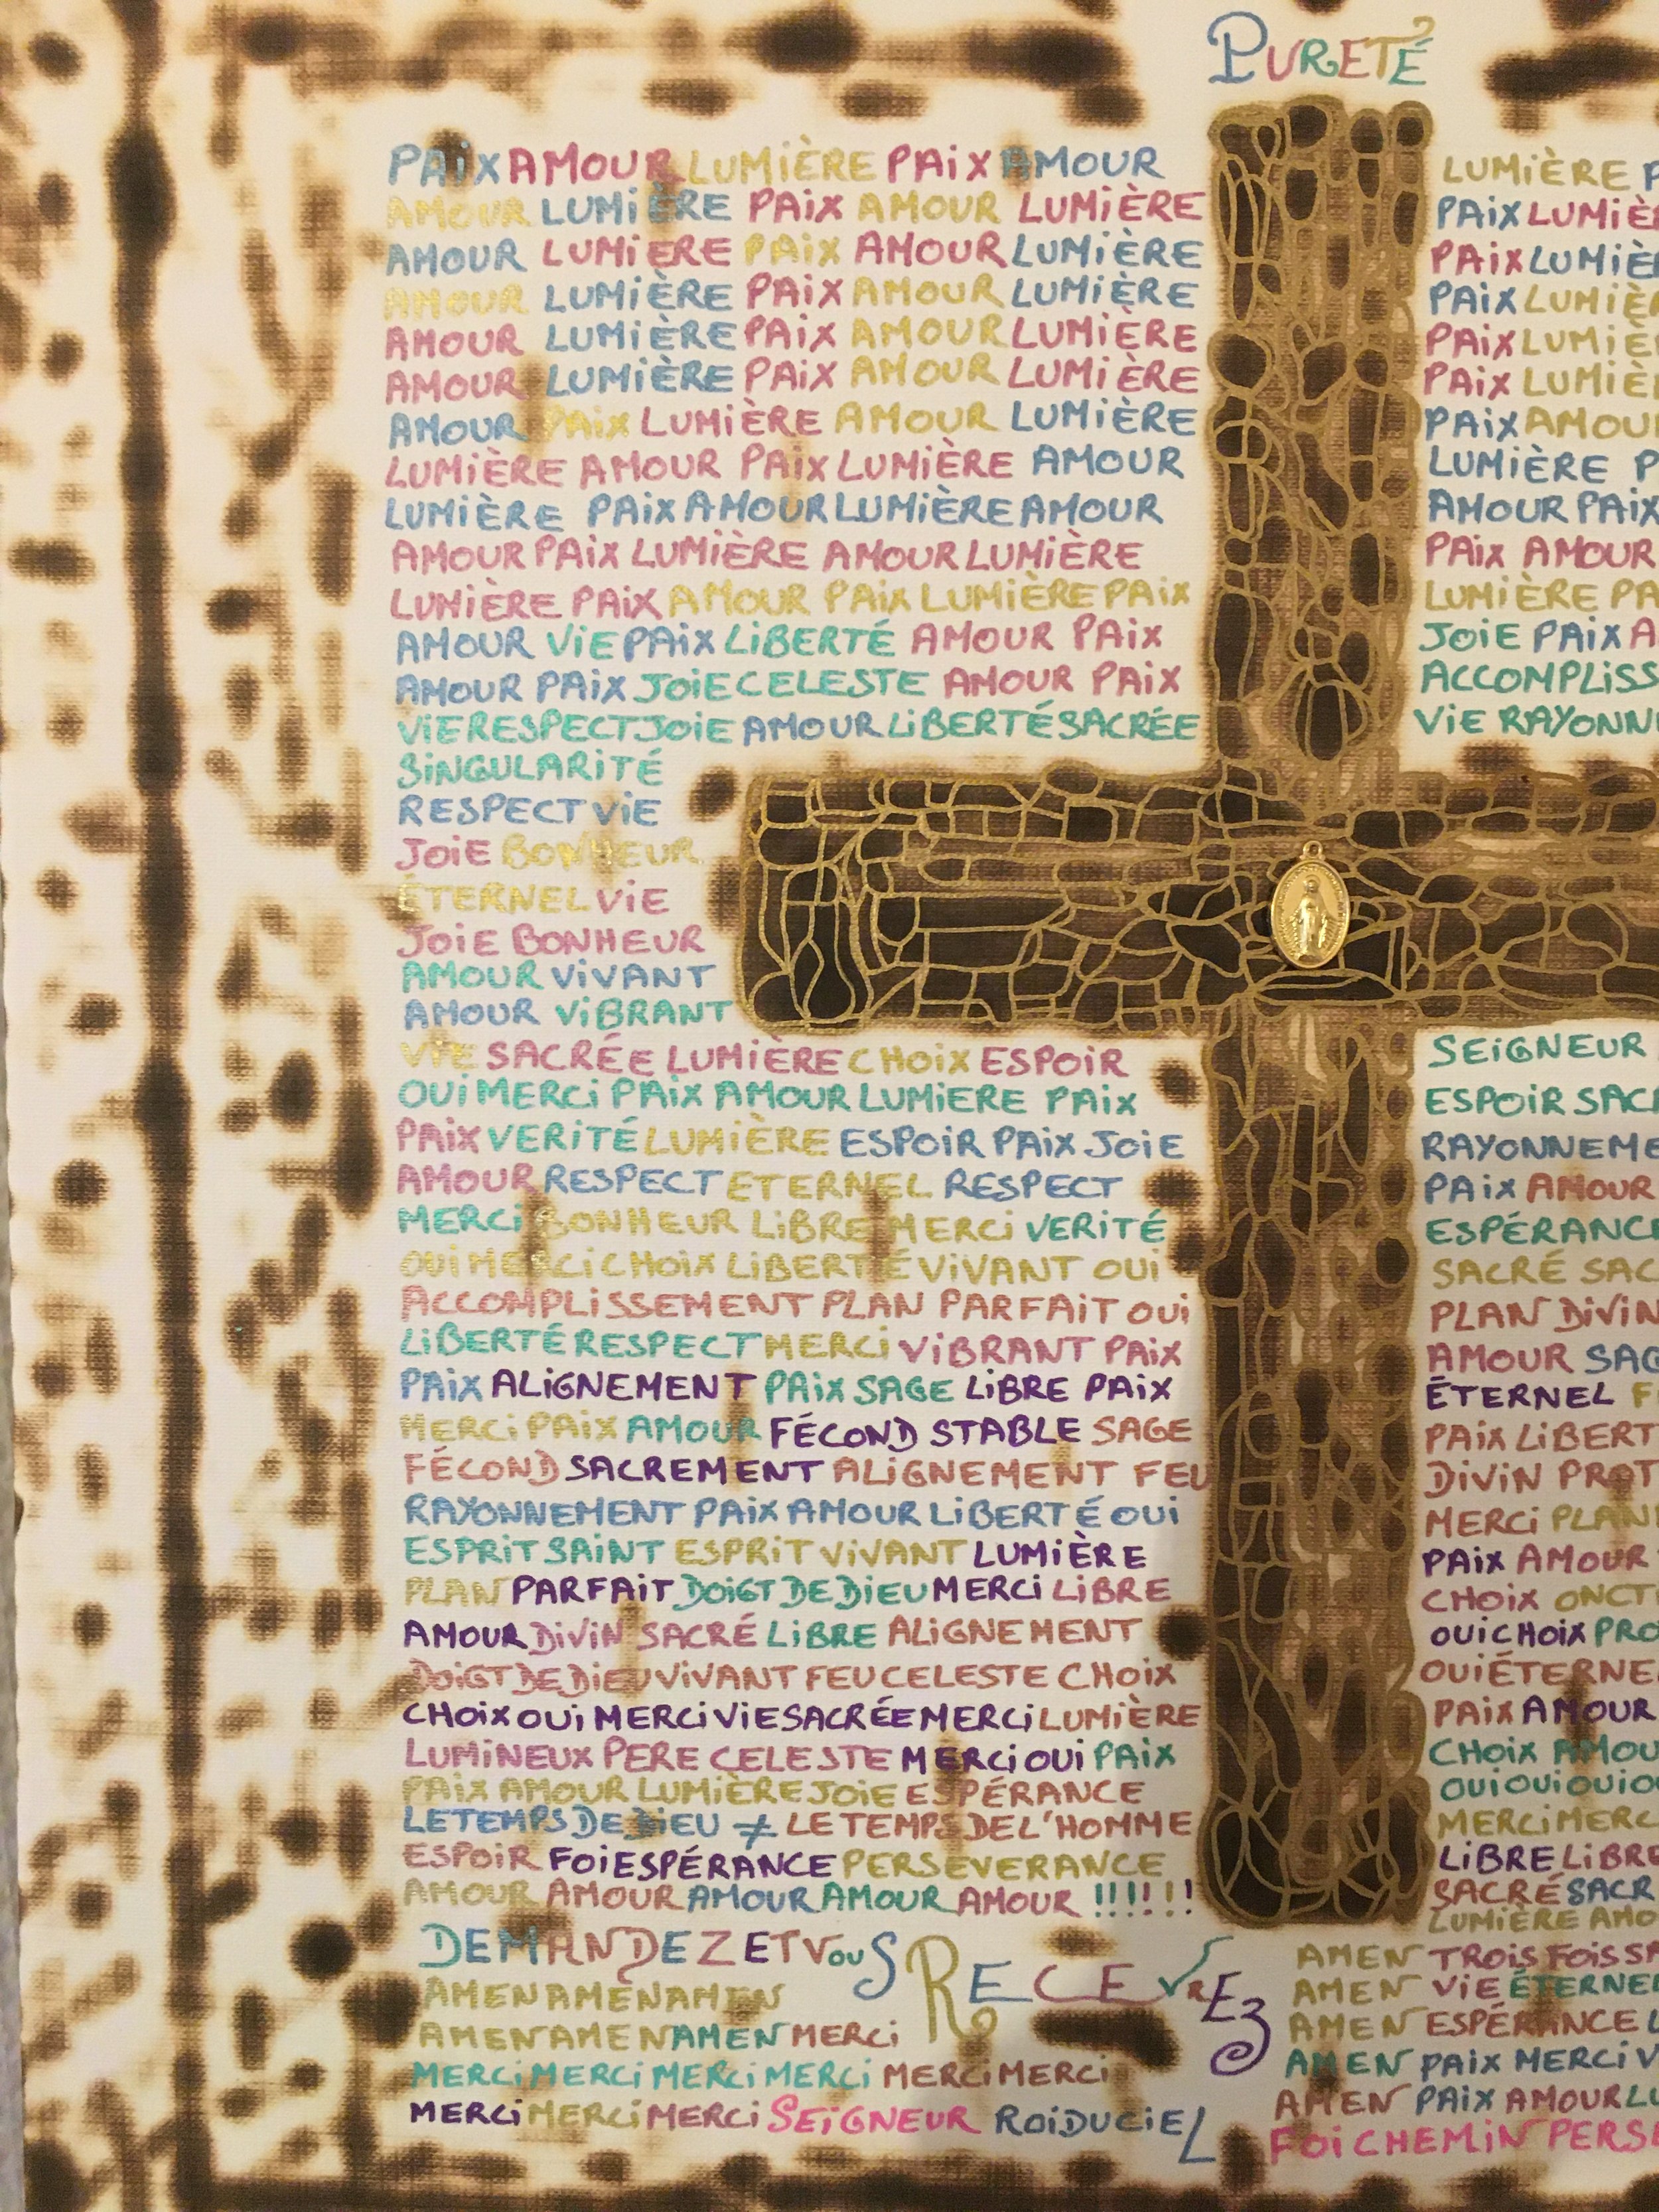 PURETÉ
PAiX AMOUR LUMiÈRE PAiX AMOUR
AMOUR LUMiÈRE PAiX AMOUR LUMiÈRE
AMOUR LUMiERE PAiX AMOUR LUMiÈRE
AMOUR LUMiÈRE PAiX AMOUR LUMiÈRE
AMOUR LUMiÈRE PAiX AMOUR LUMiÈRE
AMOUR LUMiÈRE PAiX AMOUR LUMiÈRE
AMOUR PAiX LUMiÈRE AMOUR LUMiÈRE
LUMiÈRE AMOUR PAiX LUMiÈRE AMOUR
LUMiÈRE PAiX AMOUR LUMiÈRE AMOUR
AMOUR PAiX LUMiÈRE AMOUR LUMiÈRE
LUMiÈRE PAiX AMOUR PAiX LUMiÈRE PAiX
AMOUR ViE PAiX LiBERTÉ AMOUR PAiX
AMOUR PAiX JOiE CELESTE AMOUR PAiX
ViE RESPECT JOiE AMOUR LiBERTÉ SACRÉE
SiNGULARiTÉ
RESPECT ViE
JOiE BONHEUR
ÉTERNEL ViE
JOiE BONHEUR
AMOUR ViVANT
AMOUR ViBRANT
ViE SACRÉE LUMiÈRE CHOiX ESPOiR
OUi MERCi PAiX AMOUR LUMiERE PAiX
PAiX VERiTÉ LUMiÈRE ESPOiR PAiX JOiE
AMOUR RESPECT ETERNEL RESPECT
MERCi BONHEUR LiBRE MERCi VERiTÉ
OUi MERCi CHOiX LiBERTÉ ViVANT OUi
ACCOMPLiSSEMENT PLAN PARFAiT OUi
LiBERTÉ RESPECT MERCi ViBRANT PAiX
PAiX ALiGNEMENT PAiX SAGE LiBRE PAiX
MERCi PAiX AMOUR FÉCOND STABLE SAGE
FÉCOND SACREMENT ALiGNEMENT FEU
RAYONNEMENT PAiX AMOUR LiBERTÉ OUi
ESPRiT SAiNT ESPRiT ViVANT LUMiÈRE
PLAN PARFAiT DOiGT DE DiEU MERCi LiBRE
AMOUR DiViN SACRÉ LiBRE ALiGNEMENT
DOiGT DE DiEU ViVANT FEU CELESTE CHOiX
CHOiX OUi MERCi ViE SACRÉE MERCi LUMiÈRE
LUMiNEUX PERE CELESTE MERCi OUi PAiX
PAiX AMOUR LUMiÈRE JOiE ESPÉRANCE
LE TEMPS DE DiEU ≠ LE TEMPS DE L'HOMME
ESPOiR FOi ESPÉRANCE PERSEVERANCE
AMOUR AMOUR AMOUR AMOUR AMOUR !!!!!!
DEMANDEZ ET VOUS RECEVREZ
AMEN AMEN AMEN
AMEN AMEN AMEN MERCi
MERCi MERCi MERCi MERCi MERCi MERCi
MERCi MERCi MERCi SEiGNEUR ROi DU CiEL
LUMiÈRE P
PAiX LUMiÈ
PAiX LUMiÈ
PAiX LUMiÈ
PAiX LUMiÈ
PAiX LUMiÈ
PAiX AMOU
LUMiÈRE P
AMOUR PAiX
PAiX AMOUR
LUMiÈRE PA
JOiE PAiX A
ACCOMPLiSS
ViE RAYONN
SEiGNEUR
ESPOiR SAC
RAYONNEME
PAiX AMOUR
ESPÉRANCE
SACRÉ SAC
PLAN DiViN
AMOUR SAG
ÉTERNEL F
PAiX LiBERT
DiViN PROT
MERCi PLAN
PAiX AMOUR
CHOiX ONCT
OUi CHOiX PRO
OUi ÉTERNE
PAiX AMOUR
CHOiX AMOU
OUi OUi OUi O
MERCi MERC
LiBRE LiBRE
SACRÉ SACR
LUMiÈRE AMO
AMEN TROiS FOiS SA
AMEN ViE ÉTERNE
AMEN ESPÉRANCE L
AMEN PAiX MERCi V
AMEN PAiX AMOUR LU
FOi CHEMiN PERSE